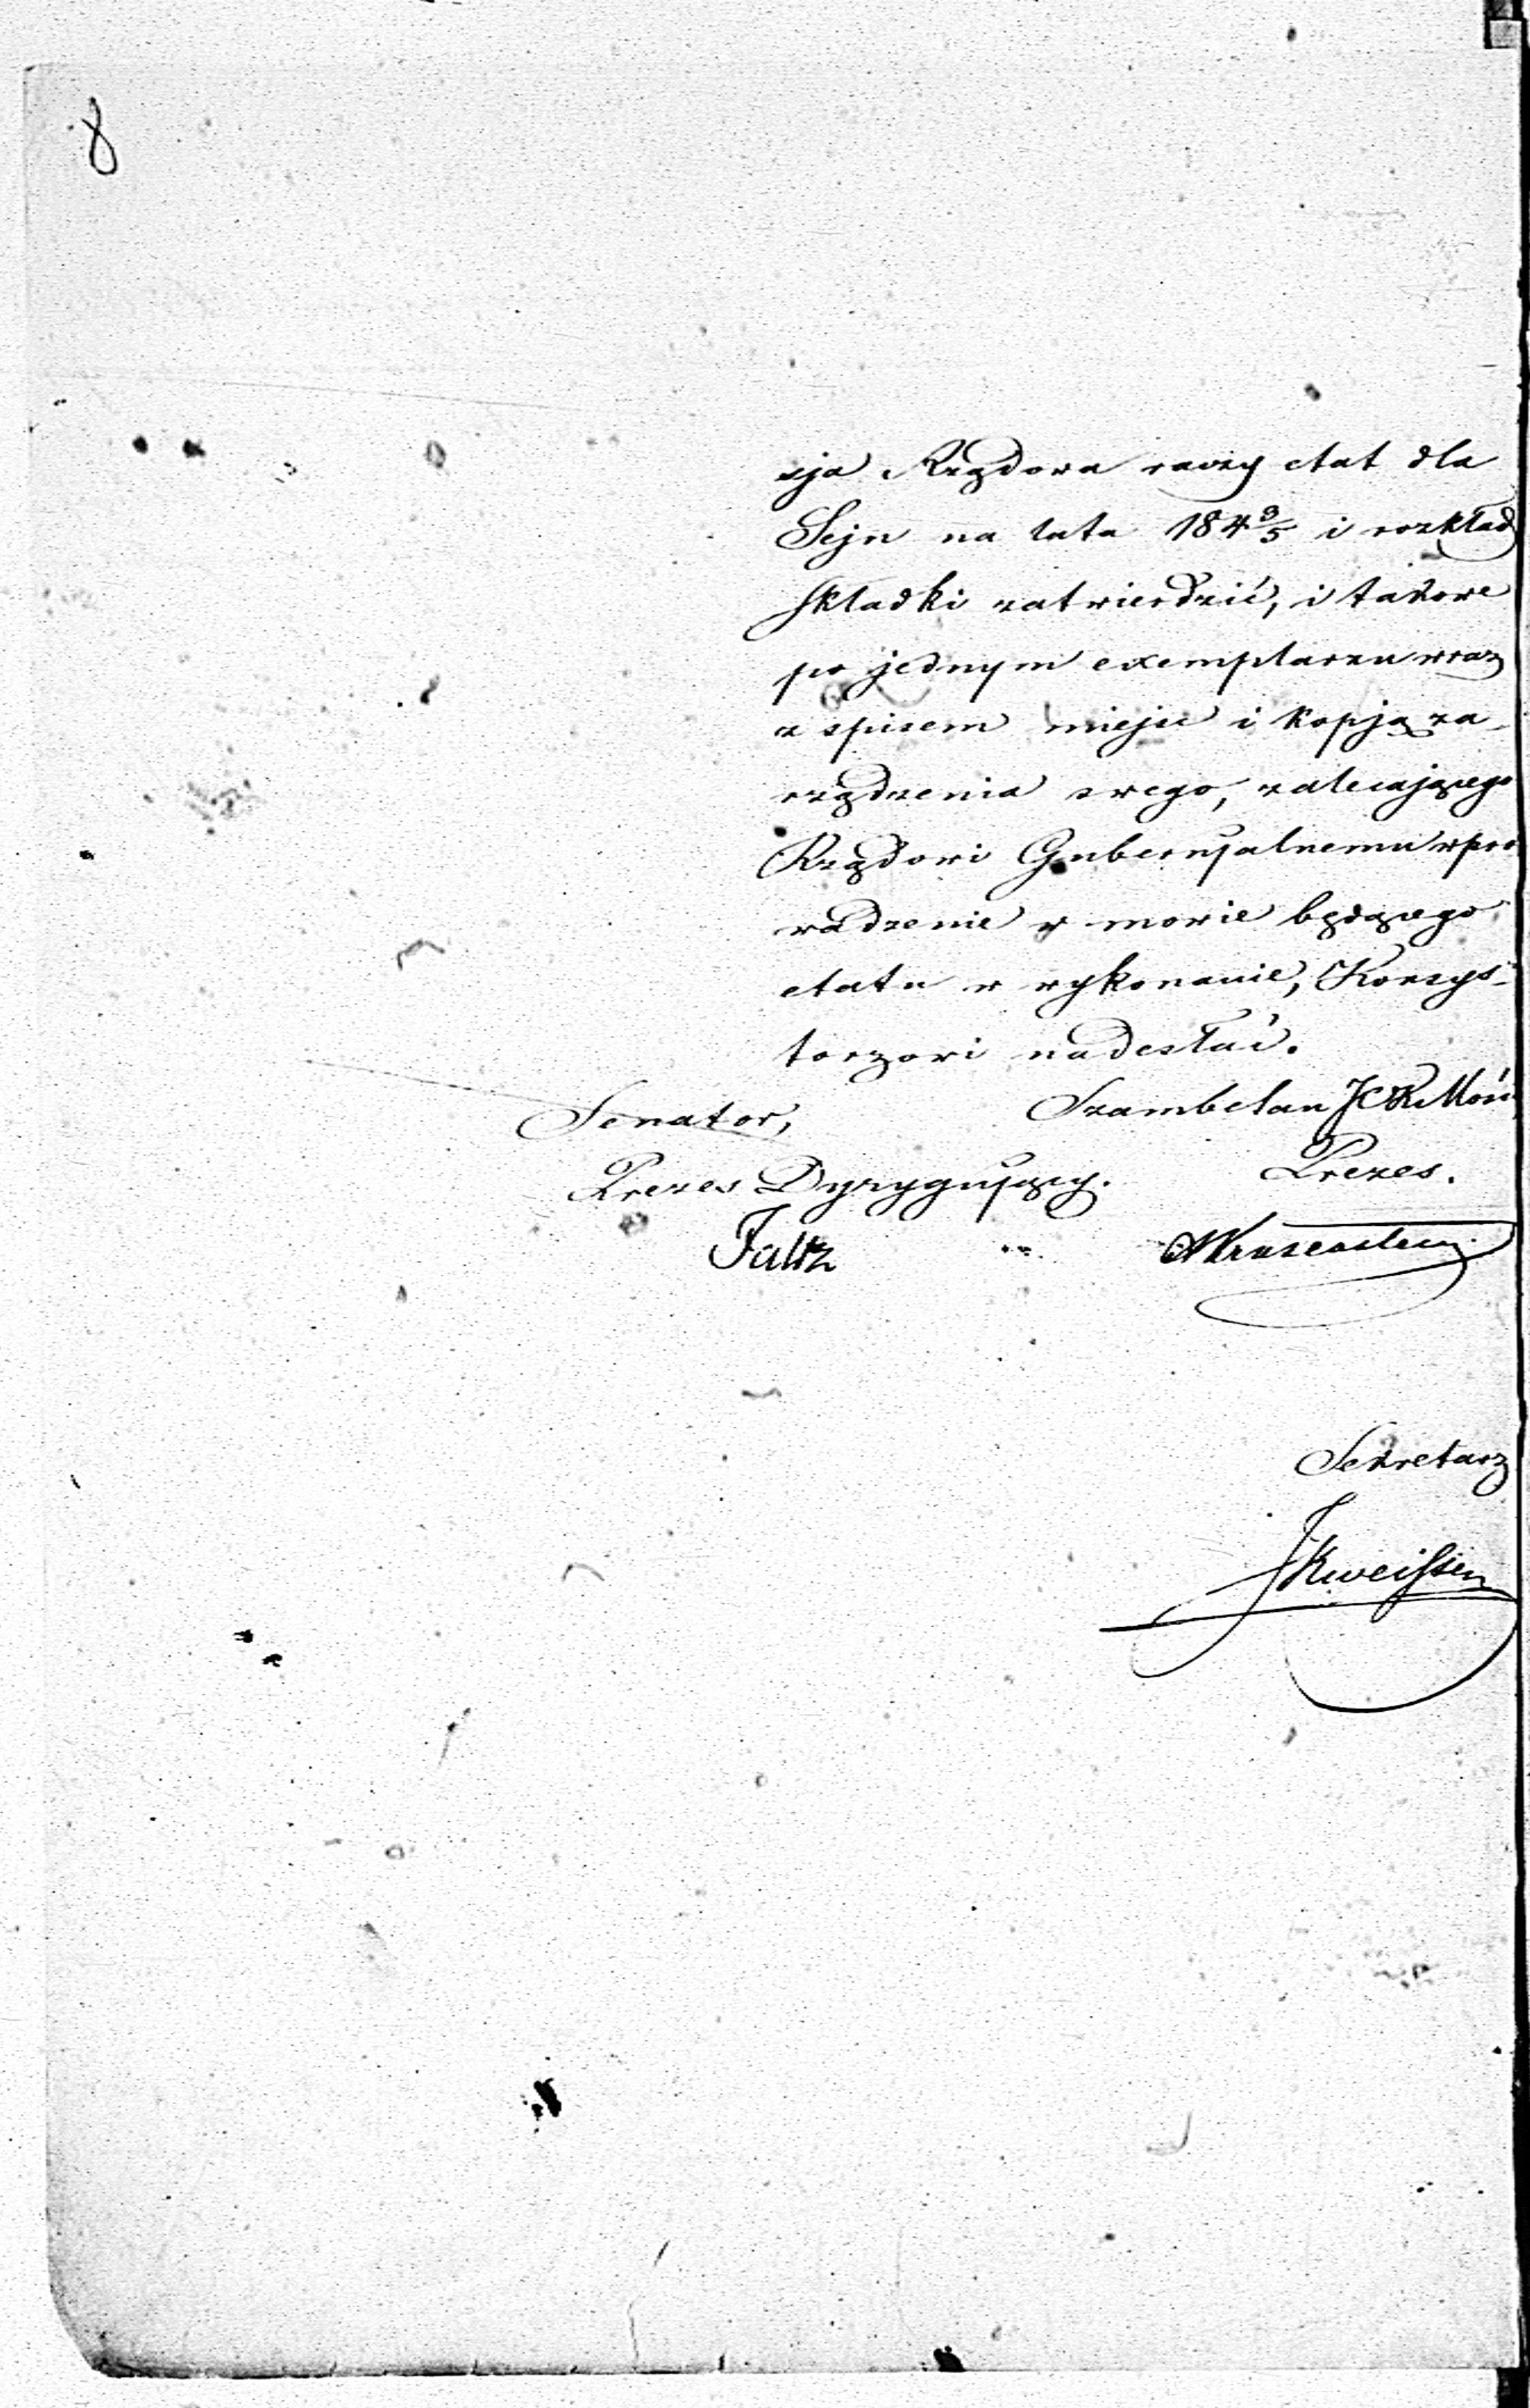 8
sja Rządowa raczy etat dla
Sejn na lata 184 3/5 i rozkład
składki zatwierdzić, i takowe
po jednym exemplarzu wraz
z spisem miejsc i kopją za-
rządzenia swego, zalecającego
Rządowi Gubernjalnemu wpro
wadzenie w mowie będącego
etatu w wykonanie, Konsys-
torzowi nadesłać.
Senator, Szambelan JCK Mości
Prezes Dyrygujący. Prezes.
Faltz
Sekretarz